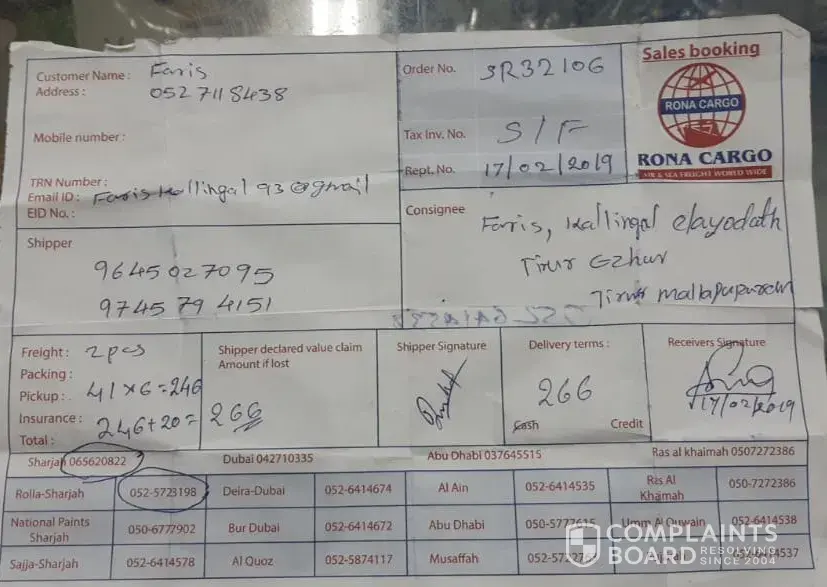 Sales booking
RONA CARGO
RONA CARGO
AIR & SEA FREIGHT WORLD WIDE
Customer Name : Faris
Address : 052 7118438
Mobile number :
TRN Number :
Email ID : Faris Kallingal 93 @gmail
EID No. :
Order No. SR32106
Tax Inv. No. S/F
Rept. No. 17/02/2019
Shipper
9645027095
9745 79 4151
Consignee
Faris, Kallingal elayodath
Tirur Ezhur
Tirur
Freight : 2 pcs
Packing :
Pickup : 41 x 6 = 246
Insurance : 246 + 20 = 266
Total :
Shipper declared value claim
Amount if lost
Shipper Signature
Delivery terms :
266
Cash Credit
Receivers Signature
17/02/2019
Sharjah 065620822 Dubai 042710335 Abu Dhabi 037645515 Ras al khaimah 0507272386
Rolla-Sharjah 052-5723198 Deira-Dubai 052-6414674 Al Ain 052-6414535 Ris Al Khaimah 050-7272386
National Paints Sharjah 050-6777902 Bur Dubai 052-6414672 Abu Dhabi Umm Al Quwain 052-6414538
Sajja-Sharjah 052-6414578 Al Quoz 052-5874117 Musaffah
COMPLAINTS
BOARD RESOLVING
SINCE 2004